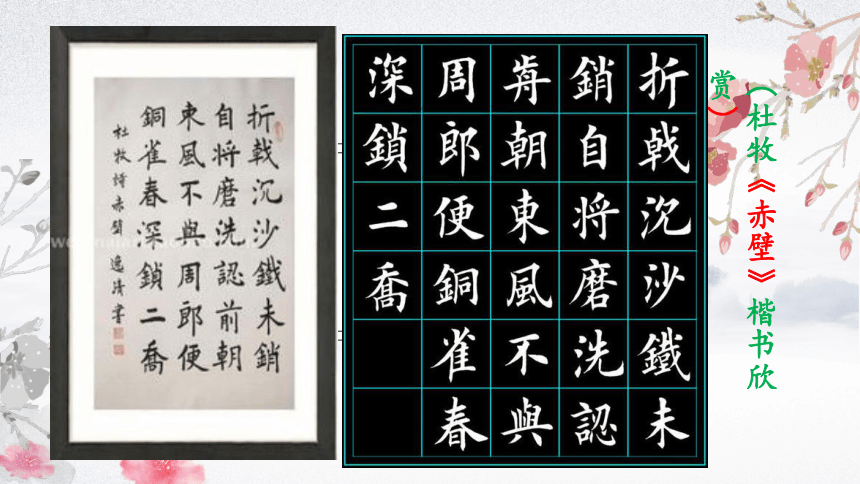 （杜牧《赤壁》楷书欣
赏）
折戟沉沙鐵未
銷自将磨洗認
歬朝東風不與
周郎便銅雀春
深鎖二喬
折戟沉沙鐵未銷
自将磨洗認前朝
東風不與周郎便
銅雀春深鎖二喬
杜牧詩赤壁 逸清書